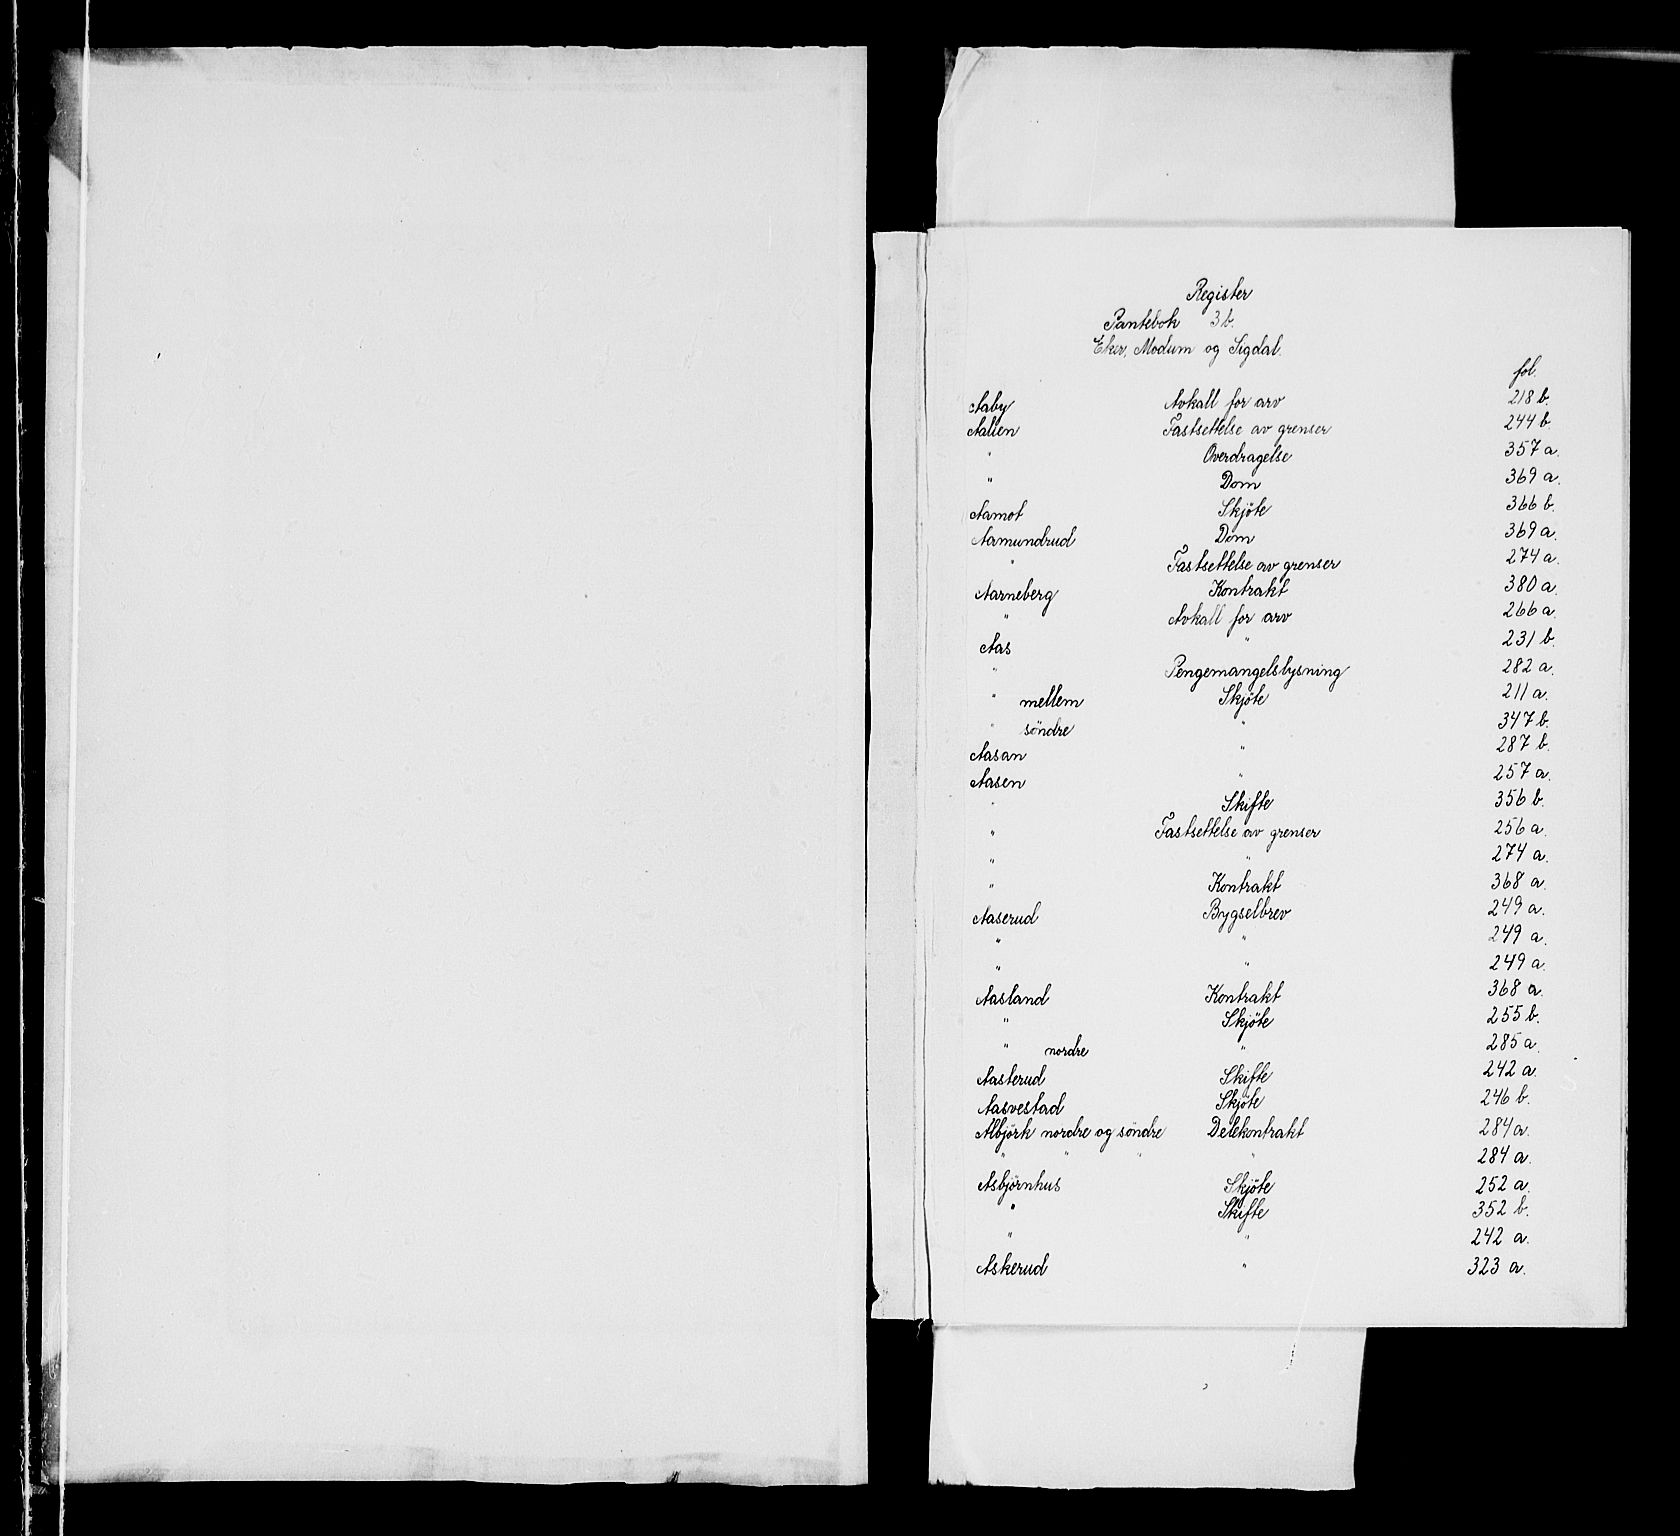 Register
Pantebok 3 b.
Eker, Modum og Sigdal.
fol.
Aaby Avkall for arv 218 b.
Aalien Fastsettelse av grenser 244 b.
" Overdragelse 357 a.
" Dom 369 a.
Aamot Skjöte 366 b.
Aamundrud Dom 369 a.
" Fastsettelse av grenser 274 a.
Aarneberg Kontrakt 380 a.
" Avkall for arv 266 a.
Aas " 231 b.
" Pengemangelslysning 282 a.
" mellem Skjöte 211 a.
" söndre " 347 b.
Aasan " 287 b.
Aasen " 257 a.
" Skifte 356 b.
" Fastsettelse av grenser 256 a.
" " 274 a.
" Kontrakt 368 a.
Aaserud Bygselbrev 249 a.
" " 249 a.
" " 249 a.
Aasland Kontrakt 368 a.
" Skjöte 255 b.
" nordre " 285 a.
Aasterud Skifte 242 a.
Aasvestad Skjöte 246 b.
Albjörk nordre og söndre Delekontrakt 284 a.
" " " " 284 a.
Asbjörnhus Skjöte 252 a.
" Skifte 352 b.
" " 242 a.
Askerud " 323 a.